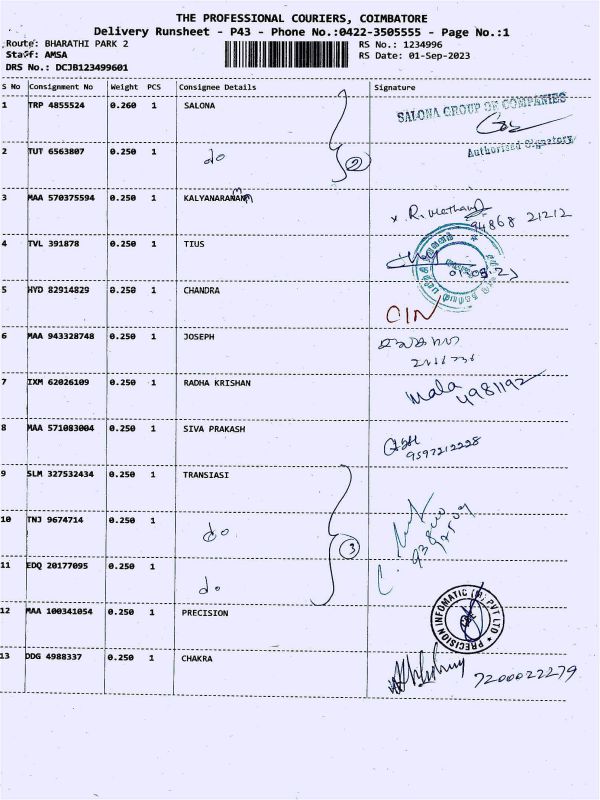 THE PROFESSIONAL COURIERS, COIMBATORE
Delivery Runsheet - P43 - Phone No.:0422-3505555 - Page No.:1
Route: BHARATHI PARK 2 RS No.: 1234996
Staff: AMSA RS Date: 01-Sep-2023
DRS No.: DCJB123499601
S No Consignment No Weight PCS Consignee Details Signature
1 TRP 4855524 0.260 1 SALONA SALONA GROUP OF COMPANIES
Authorised Signatory
2 TUT 6563807 0.250 1 do 2
3 MAA 570375594 0.250 1 KALYANARANAM
94868 21212
4 TVL 391878 0.250 1 TIUS
5 HYD 82914829 0.250 1 CHANDRA
6 MAA 943328748 0.250 1 JOSEPH
7 IXM 62026109 0.250 1 RADHA KRISHAN Mala
4981192
8 MAA 571083004 0.250 1 SIVA PRAKASH
9597212228
9 SLM 327532434 0.250 1 TRANSIASI
10 TNJ 9674714 0.250 1 do 3
11 EDQ 20177095 0.250 1 do
12 MAA 100341054 0.250 1 PRECISION PRECISION INFOMATIC (M) PVT LTD
13 DDG 4988337 0.250 1 CHAKRA 7200022279